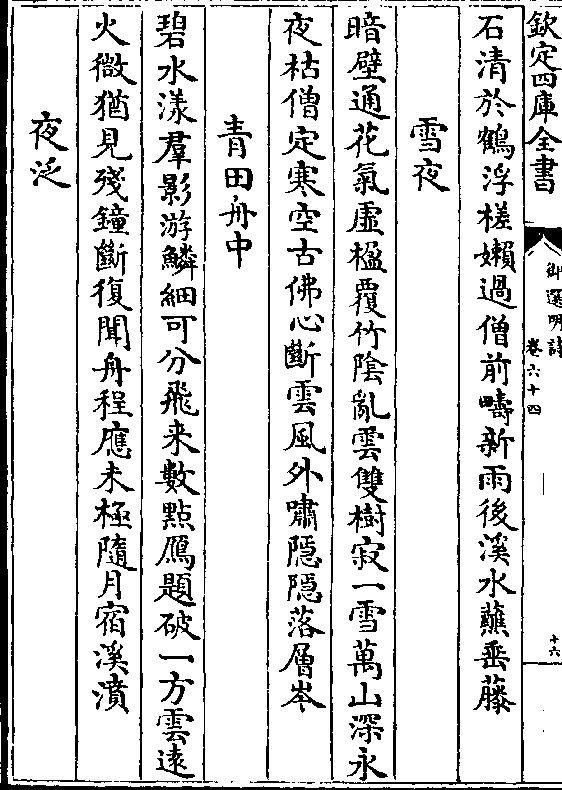 欽定四庫全書
御選明詩
卷六十四
十六
石清於鶴浮槎嬾過僧前疇新雨後溪水蘸垂藤
雪夜
暗壁通花氣虛楹覆竹陰亂雲雙樹寂一雪萬山深永
夜枯僧定寒空古佛心斷雲風外嘯隱隱落層岑
青田舟中
碧水漾羣影游鱗細可分飛来數點鴈題破一方雲遠
火微猶見殘鐘斷復聞舟程應未極隨月宿溪濆
夜泛